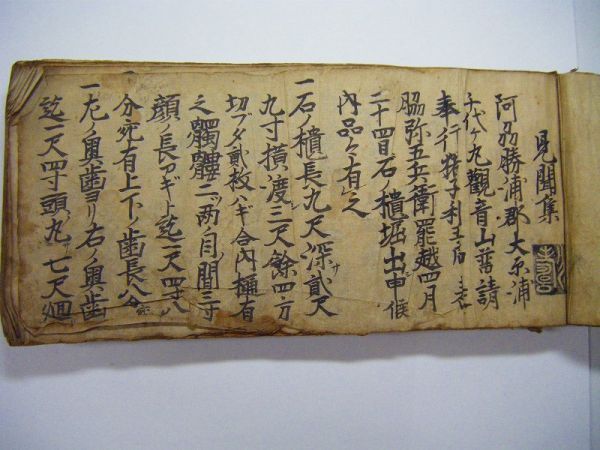 見聞集
阿州勝浦郡大原浦
千代ヶ丸觀音山普請
奉行猪子利五右
脇弥五兵衛罷越四月
二十四日石ノ櫃堀出申候
内品々有之
一石ノ櫃長九尺深サ貮尺
九寸横ノ渡三尺餘四方
切ブタ貮枚ハギ合内桶有
之髑髏二ツ両ノ目ノ間三寸
顔ノ長アギト迄二尺四寸八
分宛有上下ノ歯長八分
一左ノ奥歯ヨリ右ノ奥歯
迄一尺四寸頭ノ丸サ七尺廻